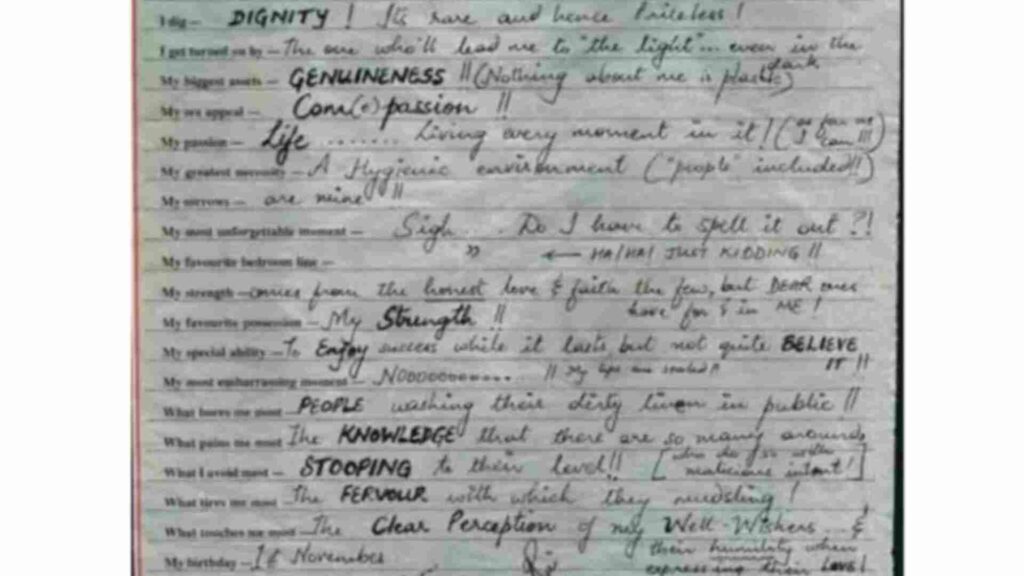 I dig — DIGNITY! Its rare and hence Priceless!
I get turned on by — The one who'll lead me to "the light"... even in the dark
My biggest assets — GENUINENESS!! (Nothing about me is plastic)
My sex appeal — Com(e)passion!!
My passion — Life ....... Living every moment in it! (as far as I can!!!)
My greatest necessity — A Hygienic environment ("people" included!!)
My sorrows — are mine!!
My most unforgettable moment — Sigh... Do I have to spell it out?!
My favourite bedroom line — " ← HA! HA! JUST KIDDING!!
My strength — comes from the honest love & faith the few, but DEAR ones have for & in ME!
My favourite possession — My Strength!!
My special ability — To Enjoy success while it lasts, but not quite BELIEVE IT!!
My most embarrassing moment — Noooooooo.... !! My lips are sealed!!
What bores me most — PEOPLE washing their dirty linen in public!!
What pains me most — The KNOWLEDGE that there are so many around, [who do so with malicious intent!]
What I avoid most — STOOPING to their level!!
What tires me most — The FERVOUR with which they mudsling!
What touches me most — The Clear Perception of my Well-Wishers... & their humility when expressing their LOVE!
My birthday — 1st November